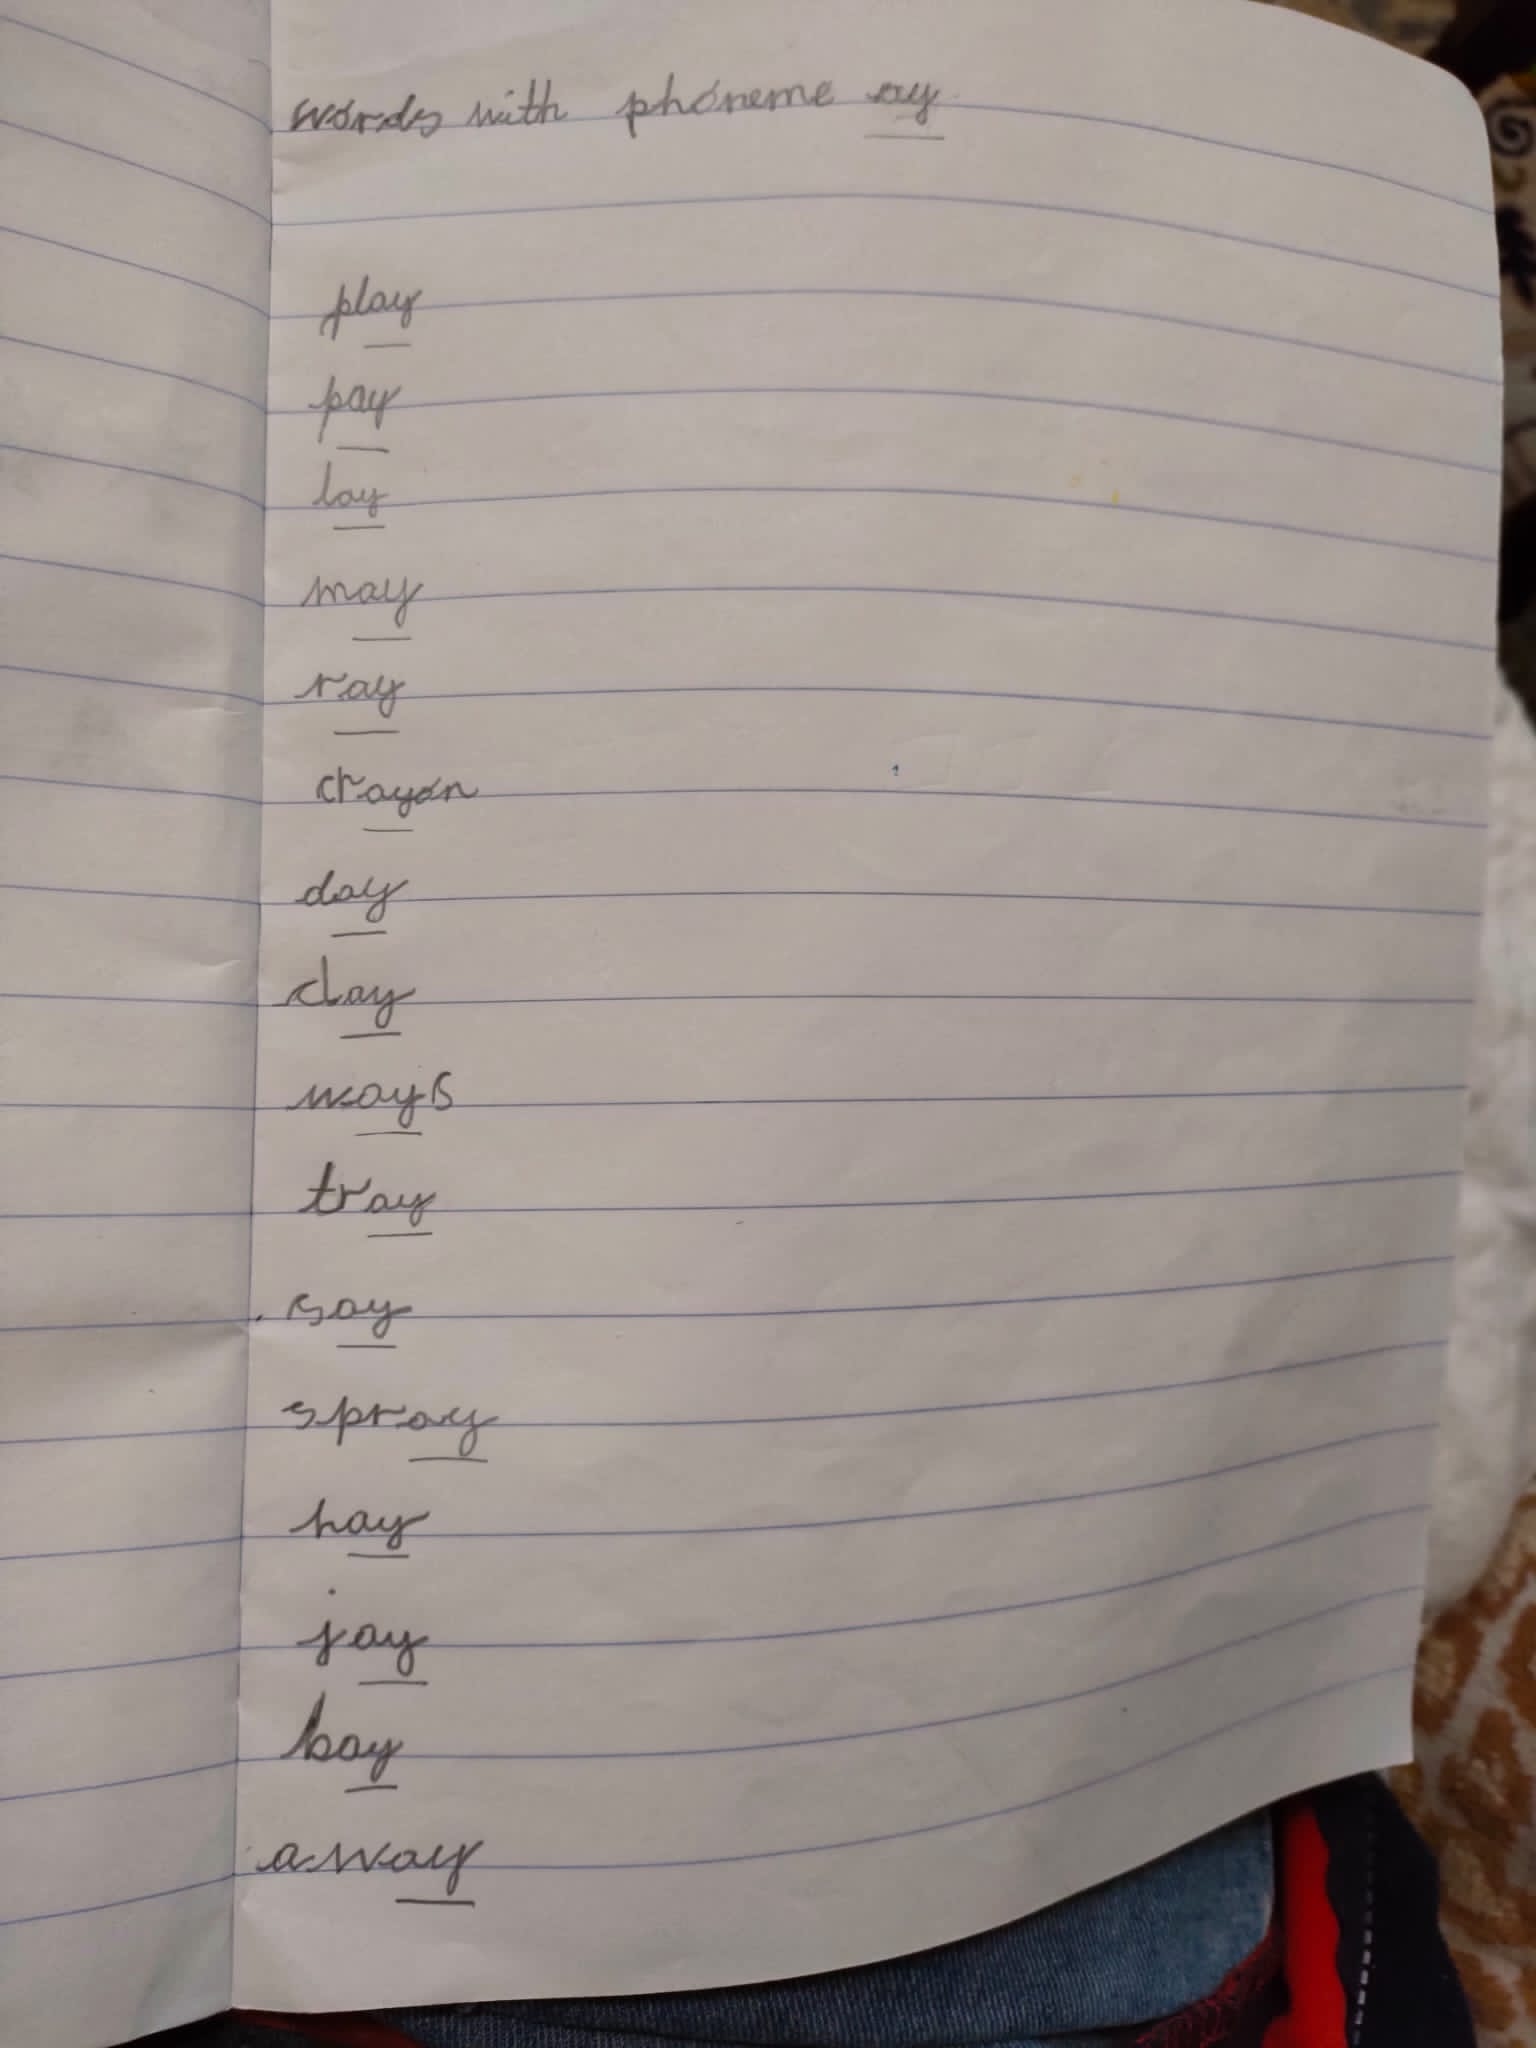 words with phoneme ay
play
pay
lay
may
ray
crayon
day
clay
ways
tray
say
spray
hay
jay
bay
away